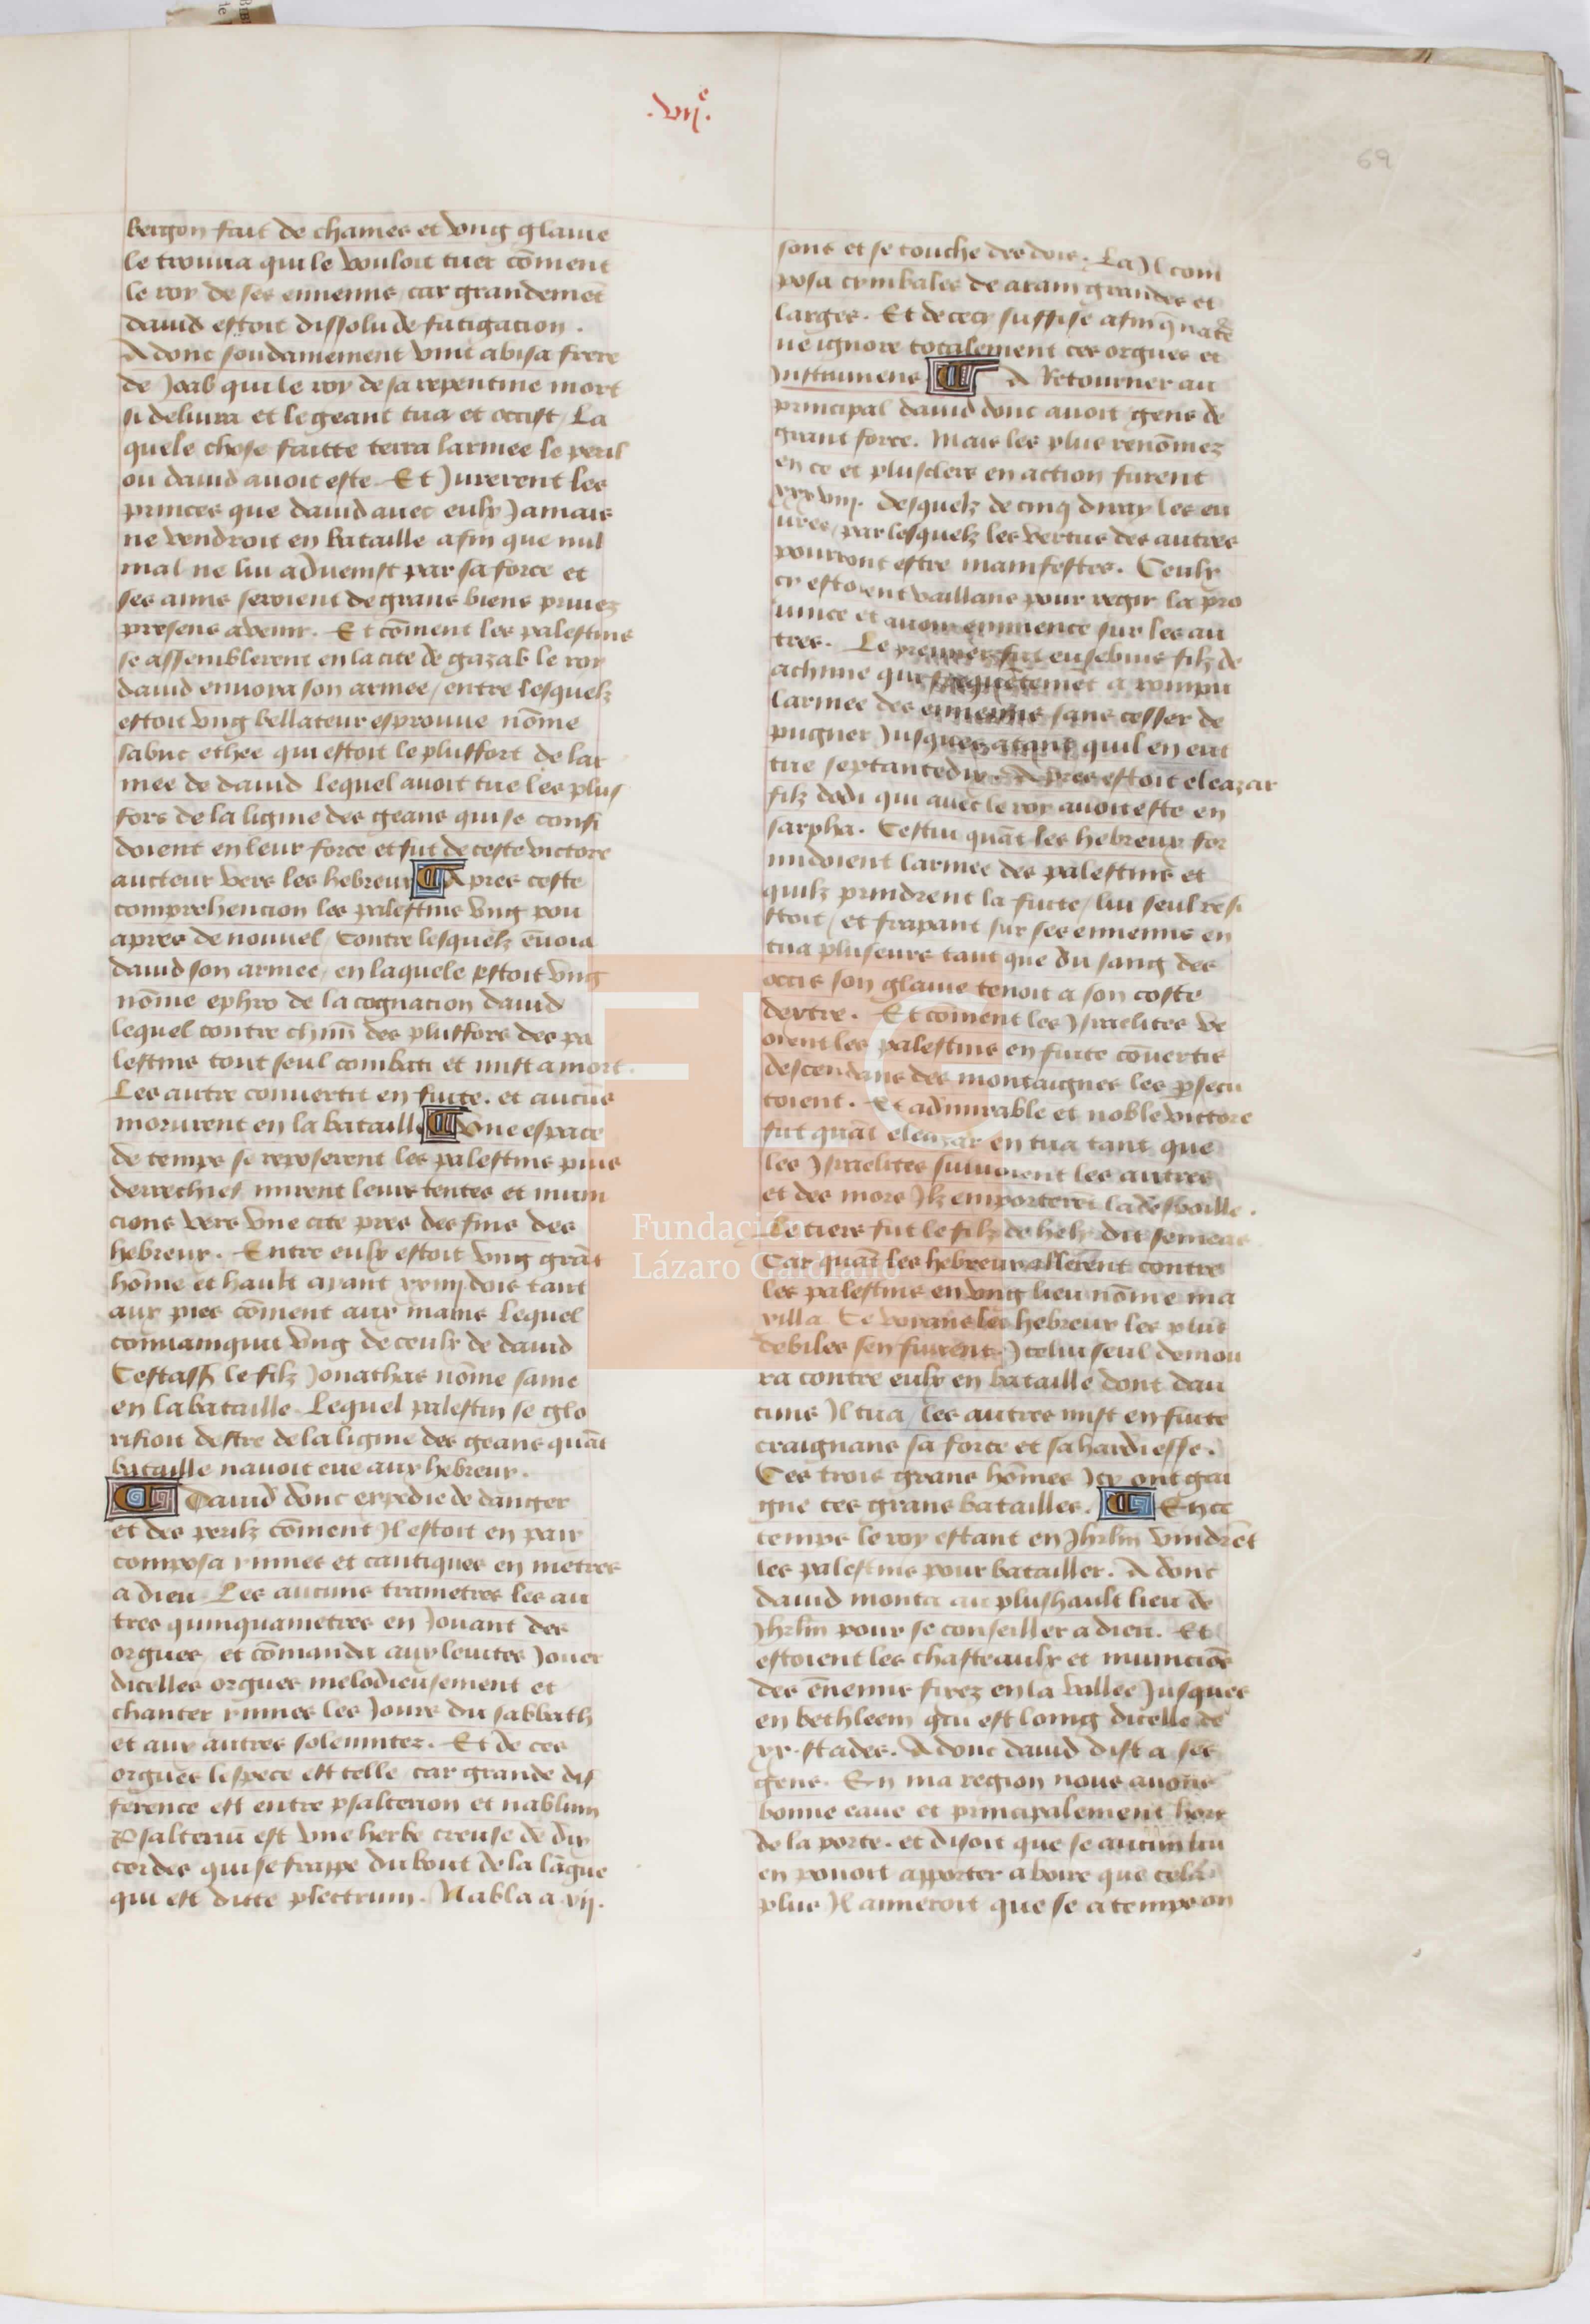 .vij.e
69
bergon fait de chaines et vng glaiue
le trouua qui le vouloit tuer cōment
le roy de ses ennemis car grandemēt
dauid estoit dissolu de fatigacion.
Adonc soudainement vint abisa frere
de Joab qui le roy de sa repentine mort
si deliura et le geant tua et occist / La
quele chose faitte terra larmee le peril
ou dauid auoit este. Et Jurerent les
princes que dauid auec eulx Jamais
ne vendroit en bataille afin que nul
mal ne lui aduenist par sa force et
ses amis seroient de grans biens priuez
presens a venir. Et cōment les palestins
se assemblerent en la cite de gazab le roy
dauid enuoya son armee / entre lesquelz
estoit vng bellateur esprouue nōme
sabuc ethee qui estoit le plusfort de lar
mee de dauid lequel auoit tue les plus
fors de la lignie des geans qui se confi
doient en leur force et fut de ceste victore
aucteur vers les hebreux Apres ceste
comprehencion les palestins vng pou
apres de nouuel / Contre lesquelz ēuoia
dauid son armee / en laquele estoit vng
nōme ephro de la cognacion dauid
lequel contre chm̄ des plusfors des pa
lestins tout seul combati et mist a mort.
Les autre conuertit en fuite. et aucūs
morurent en la bataille Vne espace
de temps se reposerent les palestins puis
derrechief mirent leurs tentes et muni
cions vers vne cite pres des fins des
hebreux. Entre eulx estoit vng grāt
hōme et hault ayant xxiiij dois tant
aux pies cōment aux mains lequel
conuainquit vng de ceulx de dauid
Cestass̄ le filz Jonathas nōme same
en la bataille. Lequel palestin se glo
rifioit destre de la lignie des geans quāt
bataille nauoit eue aux hebreux.
Dauid donc expedie de danger
et des perilz cōment Jl estoit en paix
composa ymnes et cantiques en metres
a dieu. Les aucuns trametres les au
tres quinquametres en Jouant des
orgues / et cōmanda aux leuites Jouer
dicelles orgues melodieusement et
chanter ymnes les Jours du sabbath
et aux autres solemnitez. Et de ces
orgues lespece est telle car grande dif
ference est entre psalterion et nablum
Psalteriū est vne herbe creuse de dix
cordes qui se frappe du bout de la lāgue
qui est ditte plectrum. Nabla a xij.
sons et se touche des dois. La Jl com
posa cymbales de arain grandes et
larges. Et de cecy suffise afin q̄ natē
ne ignore totalement ces orgues et
Jnstrumens A Retourner au
principal dauid donc auoit gens de
grant force. Mais les plus renōmez
en ce et plusclers en action furent
xxxviij. desquelz de cinq diray les eu
ures / par lesquelz les vertus des autres
pourront estre manifestes. Ceulx
cy estoient vaillans pour regir la pro
uince et auoir eminence sur les au
tres. Le premier fut eusebius filz de
achime qui frequētemēt a rompu
larmee des ennemis sans cesser de
pugner Jusques atant quil en eut
tue septantedix. Apres estoit eleazar
filz dodi qui auec le roy auoit este en
sarpha. Cestui quāt les hebreux for
midoient larmee des palestins et
quilz prindrent la fuite / lui seul resi
stoit / et frapant sur ses ennemis en
tua pluseurs tant que du sang des
occis son glaiue tenoit a son coste
dextre. Et cōment les Jsraelites ve
oient les palestins en fuite cōuertis
descendans des montaignes les ꝑsecu
toient. Et admirable et noble victore
fut quāt eleazar en tua tant que
les Jsraelites suiuoient les autres
et des mors Jlz emporterēt la despoille.
Le tiers fut le filz de hely dit semeas
Car quāt les hebreux allerent contre
les palestins en vng lieu nōme ma
xilla Ce voians les hebreux les plus
debiles sen fuirent Jcelui seul demou
ra contre eulx en bataille dont dau
cuns Jl tua / les autres mist en fuite
craignans sa force et sa hardiesse.
Ces trois grans hōmes Jcy ont gai
gne ces grans batailles. En ce
temps le roy estant en Jhrlm vindrēt
les palestins pour batailler. Adonc
dauid monta au plushault lieu de
Jhrlm pour se conseiller a dieu. Et
estoient les chasteaulx et municiōs
des ēnemis fixez en la vallee Jusques
en bethleem qui est loing dicelle de
xx. stades. Adonc dauid dist a ses
gens. En ma region nous auons
bonne eaue et principalement hors
de la porte. et disoit que se aucun lui
en pouoit apporter a boire que cela
plus Jl ameroit que se a temps on
Fundación
Lázaro Galdiano